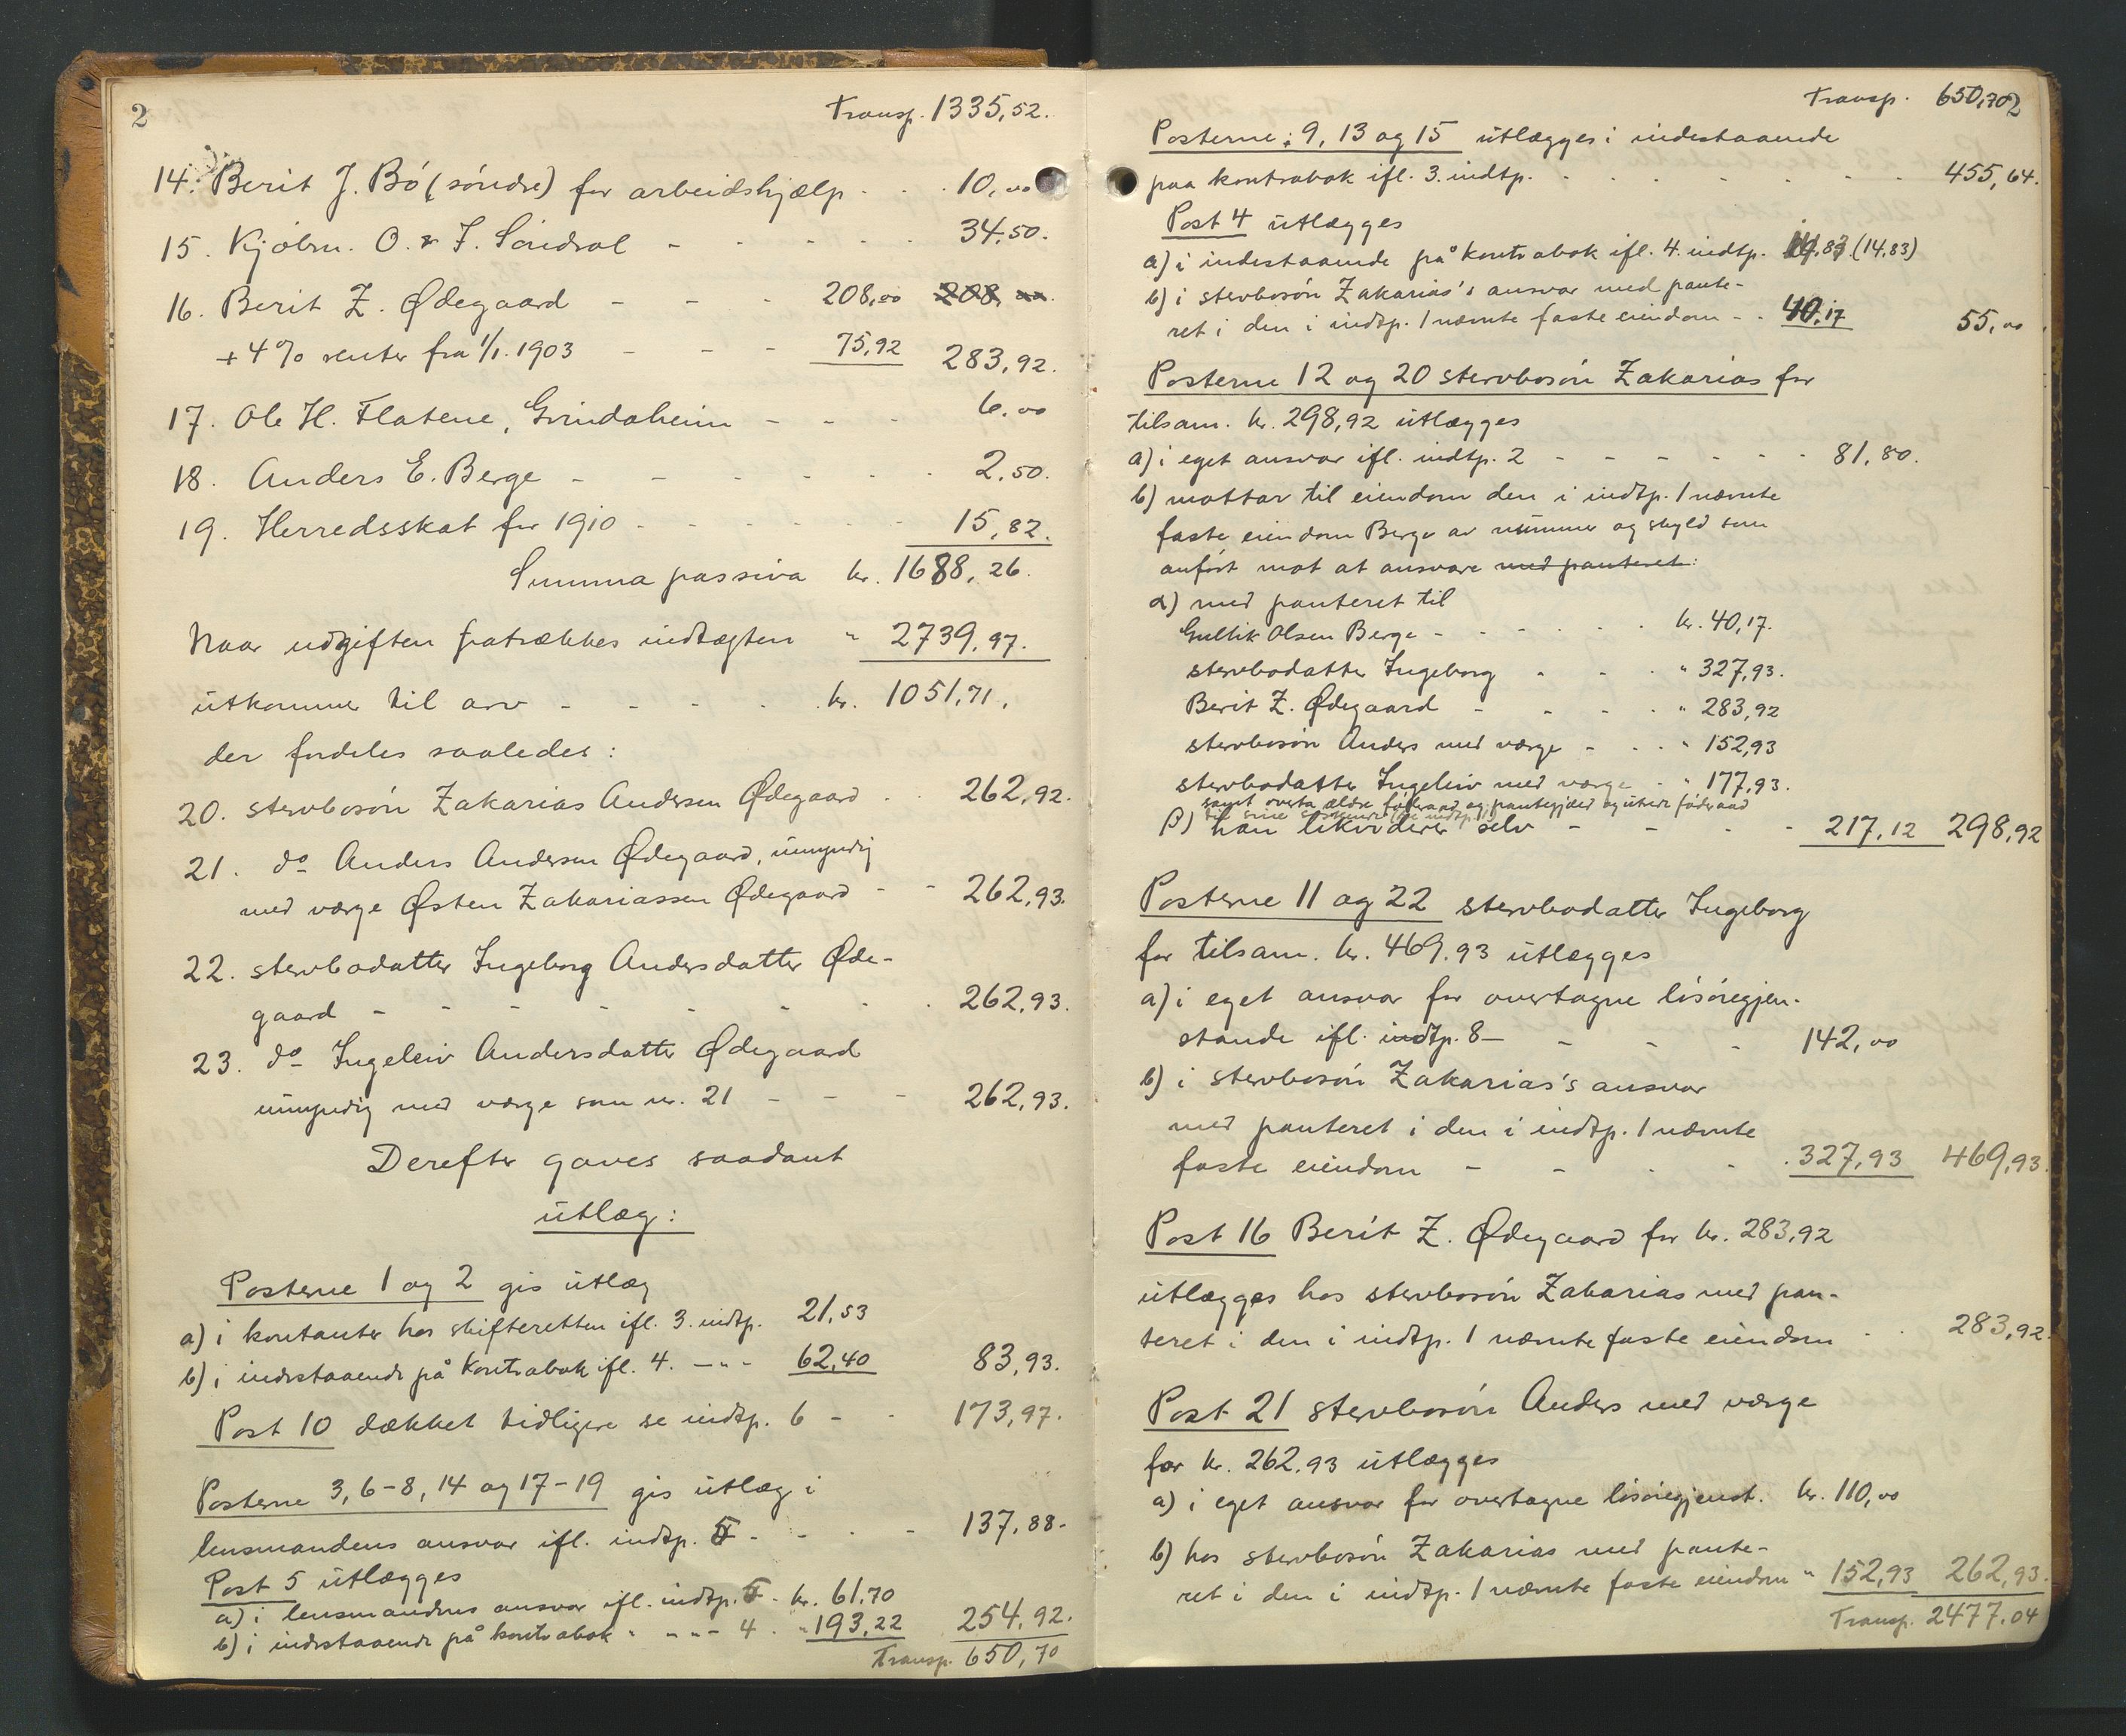 2
Transp. 1335,52.
14. Berit J. Bö (söndre) for arbeidshjælp - - 10,00
15. Kjöbm. O. & J. Söndrol - - - - 34,50.
16. Berit Z. Ødegaard - - - 208,00 208,00.
+ 4% renter fra 1/1. 1903 - - - 75,92 283,92.
17. Ole H. Flatene, Grindaheim - - - 6.00
18. Anders E. Berge - - - - - 2,50.
19. Herredsskat for 1910 - - - - - 15,82.
Summa passiva kr. 1688,26.
Naar udgiften fratrækkes indtægten " 2739,97.
utkommer til arv - - - - kr. 1051,71.
der fordeles saaledes:
20. stervbosön Zakarias Andersen Ødegaard - - 262,92.
21. do Anders Andersen Ødegaard, umyndig
med værge Østen Zakariassen Ødegaard - - 262,93.
22. stervbodatter Ingeborg Andersdatter Øde-
gaard - - - - - - - - 262,93.
23. do Ingeleiv Andersdatter Ødegaard
umyndig med værge som nr. 21 - - - 262,93.
Derefter gaves saadant
utlæg:
Posterne 1 og 2 gis utlæg
a) i kontanter hos skifteretten ifl. 3. indtp. 21,53
b) i indestaaende på kontrabok ifl. 4. -"- 62,40 83,93.
Post 10 dækket tidligere se indtp. 6 - - 173,97.
Posterne 3, 6-8, 14 og 17-19 gis utlæg i
lensmandens ansvar ifl. indtp. 5 - - - - 137,88-
Post 5 utlægges
a) i lensmandens ansvar ifl. indtp. 5 - kr. 61,70
b) i indestaaende på kontrabok " -"- 4 - " 193,22 254,92.
Transp. 650,70
Transp. 650,702
Posterne: 9, 13 og 15 utlægges i indestaaende
paa kontrabok ifl. 3. indtp. - - - - - - 455,64.
Post 4 utlægges
a) i indestaaende på kontrabok ifl. 4. indtp. 14,83. (14,83)
b) i stervbosön Zakarias's ansvar med pante-
ret i den i indtp. 1 nævnte faste eiendom - - 40,17 55,00
Posterne 12 og 20 stervbosön Zakarias for
tilsam. kr. 298,92 utlægges
a) i eget ansvar ifl. indtp. 2 - - - - - - 81,80.
b) mottar til eiendom den i indtp. 1 nævnte
faste eiendom Berge av nummer og skyld som
anfört mot at ansvare med panteret:
α) med panteret til
Gullik Olsen Berge - - - - - - kr. 40,17.
stervbodatter Ingeborg - - - " 327,93.
Berit Z. Ødegaard - - - - " 283,92
stervbosön Anders med værge - - - " 152,93
stervbodatter Ingeleiv med værge - " 177,93.
samt overta ældre föderaad og pantegjæld og utrede föderaad
til sine söskende (se indtp. 1)
β) han likviderer selv - - - - 217,12 298,92
Posterne 11 og 22 stervbodatter Ingeborg
for tilsam. kr. 469.93 utlægges
a) i eget ansvar for overtagne lösöregjen-
stande ifl. indtp. 8 - - - - 142,00
b) i stervbosön Zakarias's ansvar
med panteret i den i indtp. 1 nævnte
faste eiendom - - - - 327,93 469,93.
Post 16 Berit Z. Ødegaard for kr. 283,92
utlægges hos stervbosön Zakarias med pan-
teret i den i indtp. 1 nævnte faste eiendom - - 283,92.
Post 21 stervbosön Anders med værge
for kr. 262.93 utlægges
a) i eget ansvar for overtagne lösöregjenst. kr. 110,00
b) hos stervbosön Zakarias med pante-
ret i den i indtp. 1 nævnte faste eiendom " 152,93 262,93.
Transp. 2477.04